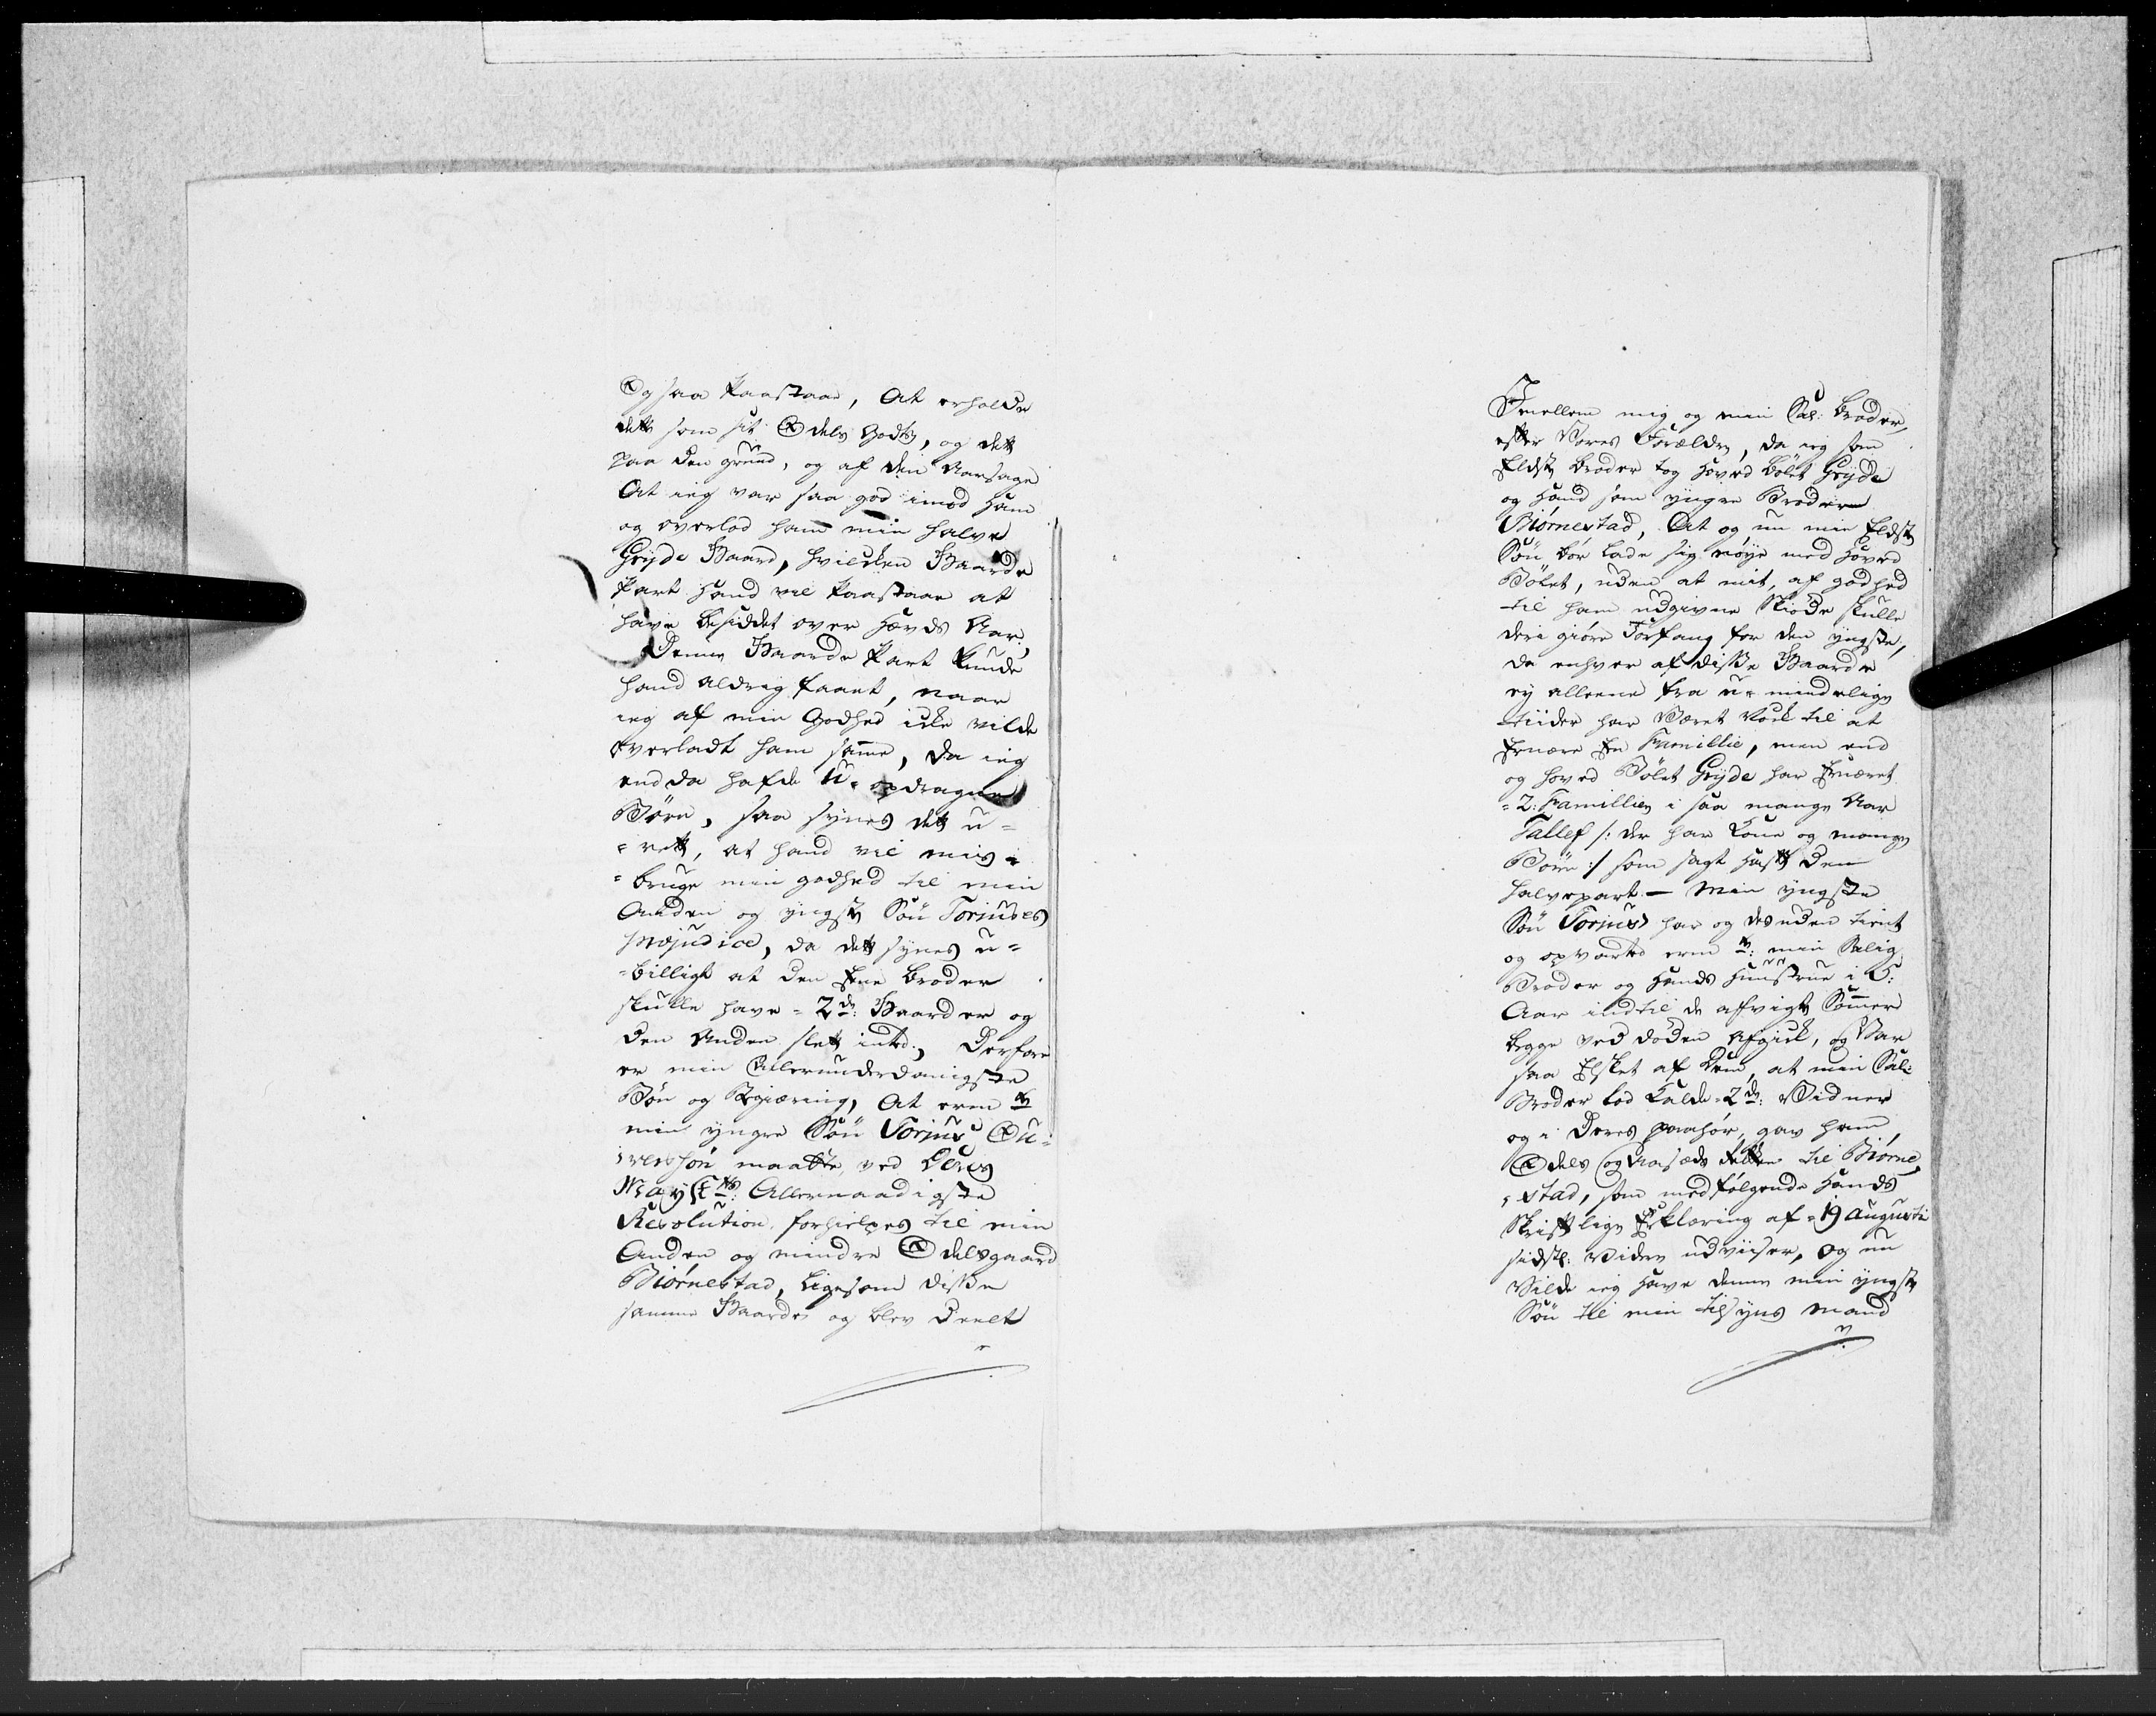 Ogsaa paastaae, At erholde
dett som sit Odels Gods, og dett
paa den grund, og af den Aarsage
At ieg var saa god imod ham
og overlod ham min halve
Gryde Gaard, hvilcken Gaarde
Part hand vil paastaae at
have besiddet over Hævds Aar,
Denne Gaarde Part kunde
hand aldrig faaet, naar
ieg af min Godhed icke vilde
overladt ham samme, da ieg
endda hafde U-opdragne
Børn, saa synes dett u=
=rett, at hand vil mis=
=bruge min godhed til min
Anden og yngste Søn Torjuses
præjudice, da dett synes u=
=billigt at den Eene broder
skulle have =2de: Gaarder og
den Anden slett inted., Derfore
er min Allerunderdanigste
Bøn og Begiæring, At
min yngre Søn Torjus
maatte ved Deres
Mayts: Allernaadigste
Resolution forhielpes til min
Anden og mindre Odelsgaard
Biørnestad, ligesom disse
samme Gaarde og blev Deelt
Imellem mig og min Sal: broder,
efter Vores Forældre, da ieg som
Eldste broder tog Hoved bølet Gryde
og Hand som yngre Broder
Biørnestad, At og nu min Eldste
Søn bør lade sig nøye med Hoved
Bølet, uden at mit, af godhed
til ham udgivne Skiøde skulle
deri giøre Forfang for den yngste,
da enhver af disse Gaarde
ey alleene fra u-mindelige
tiider har Været nock til at
Ernære En Famillie, men end
og hoved Bølet Gryde har Ernæret
=2: Famillier i saa mange Aar
Tallef /: der har Kone og mange
Børn :/ som sagt hafft den
halvepart. — Min yngste
Søn Torjus har og desuden tient
og opvarted min Salig
Broder og Hands Hunstrue i 5:
Aar indtil de afvigte Sommer
begge ved døden afgick, og Var
saa Elsket af dem, at min Sal:
Broder lod kalde =2de: Vidner
og i Deres paahør, gav ham,
Odels og Aasæde Retten til Biørne
=stad, som medfølgende Hands
Skriftlige Erklæring af =19 Augusti
sidstl: Videre udviiser, og nu
Vilde ieg have denne min yngste
Søn til min tilsyns Mand